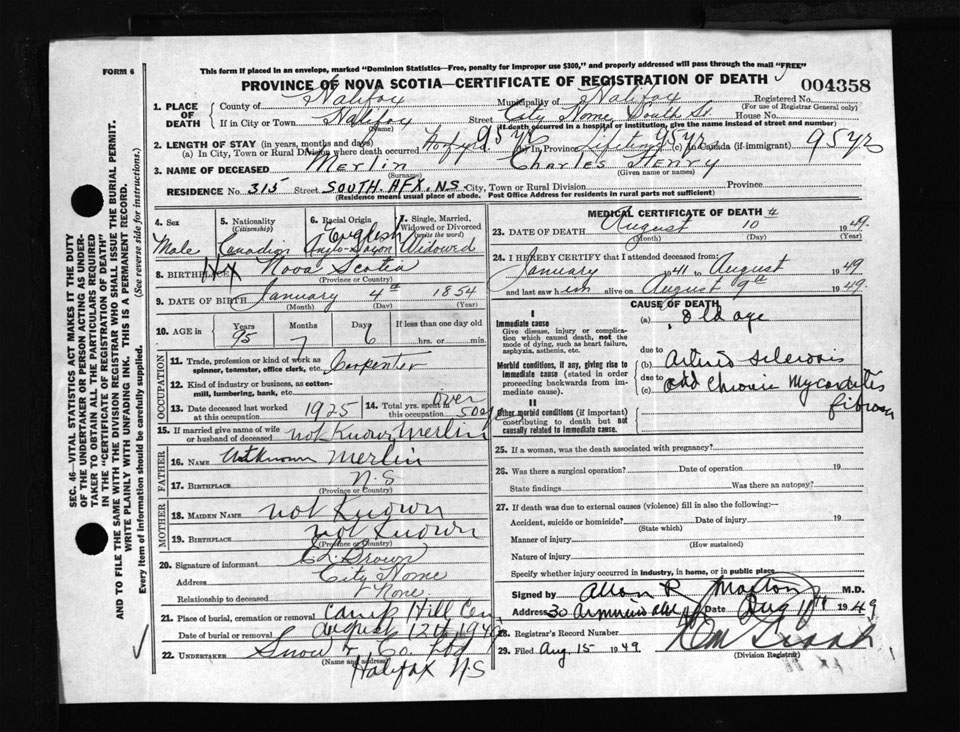 FORM 6
This form if placed in an envelope, marked "Dominion Statistics—Free, penalty for improper use $300," and properly addressed will pass through the mail "FREE"
PROVINCE OF NOVA SCOTIA—CERTIFICATE OF REGISTRATION OF DEATH
004358
1. PLACE OF DEATH
County of Halifax Municipality of Halifax Registered No.
(For use of Registrar General only)
If in City or Town Halifax Street City Home, South St House No.
(Name) (If death occurred in a hospital or institution, give the name instead of street and number)
2. LENGTH OF STAY (in years, months and days)
(a) In City, Town or Rural Division where death occurred 95 yrs (b) In Province Lifetime 95 yrs (c) In Canada (if immigrant) 95 yrs
3. NAME OF DECEASED Merlin Charles Henry
(Surname) (Given name or names)
RESIDENCE No. 315 Street SOUTH. HFX. N.S. City, Town or Rural Division Province
(Residence means usual place of abode. Post Office Address for residents in rural parts not sufficient)
4. Sex
Male
5. Nationality
(Citizenship)
Canadian
6. Racial Origin
English
Anglo-Saxon
7. Single, Married, Widowed or Divorced
(write the word)
Widowed
8. BIRTHPLACE HX Nova Scotia
(Province or Country)
9. DATE OF BIRTH January 4th 1854
(Month) (Day) (Year)
10. AGE in Years Months Days If less than one day old
95 7 6 hrs. or min.
OCCUPATION
11. Trade, profession or kind of work as spinner, teamster, office clerk, etc. Carpenter
12. Kind of industry or business, as cotton-mill, lumbering, bank, etc.
13. Date deceased last worked at this occupation 1925
14. Total yrs. spent in this occupation over 50 y
15. If married give name of wife or husband of deceased not Known Merlin
FATHER
16. NAME Unknown Merlin
17. BIRTHPLACE N.S
(Province or Country)
MOTHER
18. MAIDEN NAME not Known
19. BIRTHPLACE not Known
(Province or Country)
20. Signature of informant Brown
Address City Home
Relationship to deceased None
21. Place of burial, cremation or removal Camp Hill Cem
Date of burial or removal August 12th 1949
22. UNDERTAKER Snow & Co. Ltd
(Name and address)
Halifax NS
MEDICAL CERTIFICATE OF DEATH
23. DATE OF DEATH August 10 1949
(Month) (Day) (Year)
24. I HEREBY CERTIFY that I attended deceased from:
January 1941 to August 1949
and last saw him alive on August 9th 1949
CAUSE OF DEATH
I
Immediate cause
Give disease, injury or complication which caused death, not the mode of dying, such as heart failure, asphyxia, asthenia, etc.
(a) Old age
due to
Morbid conditions, if any, giving rise to immediate cause (stated in order proceeding backwards from immediate cause).
(b) Arterio sclerosis
due to
(c) and Chronic Myocarditis
fibrous
II
Other morbid conditions (if important) contributing to death but not causally related to immediate cause.
25. If a woman, was the death associated with pregnancy?
26. Was there a surgical operation? Date of operation 19
State findings Was there an autopsy?
27. If death was due to external causes (violence) fill in also the following:—
Accident, suicide or homicide? Date of injury 19
(State which)
Manner of injury
(How sustained)
Nature of injury
Specify whether injury occurred in industry, in home, or in public place.
Signed by Allan R Morton M.D.
Address 30 Date Aug 11th 1949
28. Registrar's Record Number
29. Filed Aug. 15 1949
(Division Registrar)
SEC. 46—VITAL STATISTICS ACT MAKES IT THE DUTY OF THE UNDERTAKER OR PERSON ACTING AS UNDERTAKER TO OBTAIN ALL THE PARTICULARS REQUIRED IN THE "CERTIFICATE OF REGISTRATION OF DEATH" AND TO FILE THE SAME WITH THE DIVISION REGISTRAR WHO SHALL ISSUE THE BURIAL PERMIT.
WRITE PLAINLY WITH UNFADING INK. THIS IS A PERMANENT RECORD.
Every item of information should be carefully supplied. (See reverse side for instructions.)